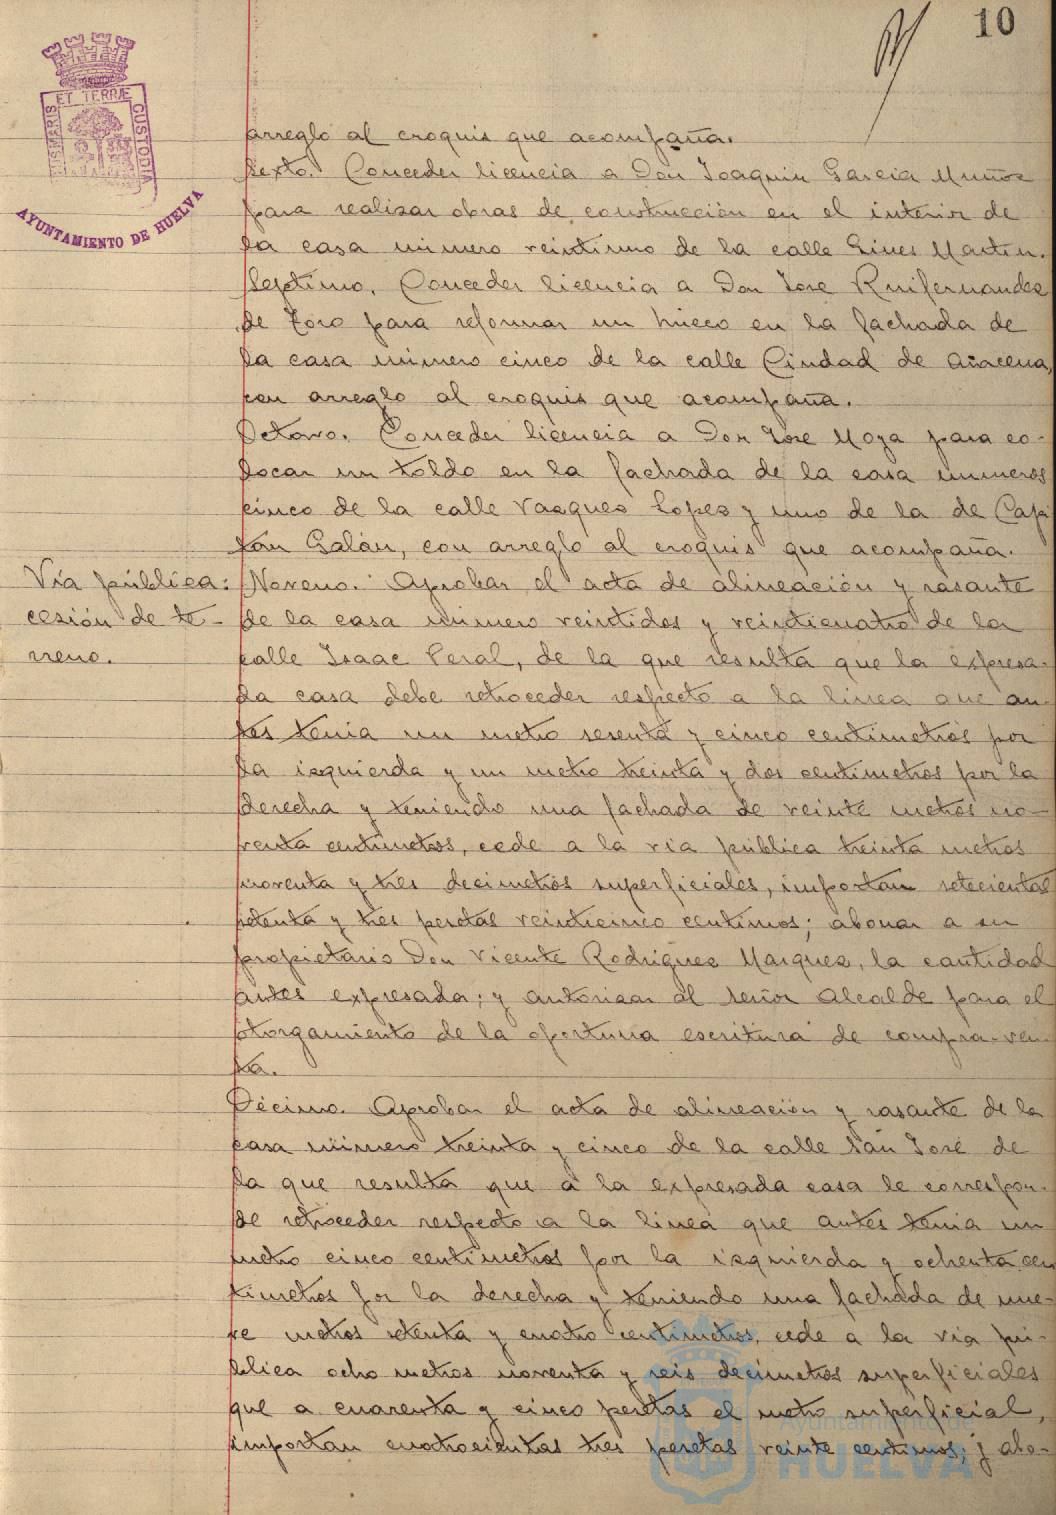 10
PORTUS MARIS ET TERRÆ CUSTODIA
AYUNTAMIENTO DE HUELVA
arreglo al croquis que acompaña.
Sexto. Conceder licencia a Don Joaquin Garcia Muñoz
para realizar obras de construcción en el interior de
la casa número veintiuno de la calle Gines Martin.
Septimo. Conceder licencia a Don Jose Ruifernandez
de Toro para reformar un hueco en la fachada de
la casa número cinco de la calle Ciudad de Aracena,
con arreglo al croquis que acompaña.
Octavo. Conceder licencia a Don Jose Moya para co-
locar un toldo en la fachada de la casa numeros
cinco de la calle Vazquez Lopez y uno de la de Capi
tán Galán, con arreglo al croquis que acompaña.
Vía pública:
cesión de te-
rreno.
Noveno. Aprobar el acta de alineación y rasante
de la casa número veintidos y veinticuatro de la
calle Isaac Peral, de la que resulta que la expresa-
da casa debe retroceder respecto a la linea que an-
tes tenia un metro sesenta y cinco centimetros por
la izquierda y un metro treinta y dos centimetros por la
derecha y teniendo una fachada de veinte metros no-
venta centimetros, cede a la via pública treinta metros
noventa y tres decimetros superficiales, importan setecientas
setenta y tres pesetas veinticinco centimos; abonar a su
propietario Don Vicente Rodriguez Marquez, la cantidad
antes expresada; y autorizar al señor Alcalde para el
otorgamiento de la oportuna escritura de compra-ven-
ta.
Décimo. Aprobar el acta de alineación y rasante de la
casa número treinta y cinco de la calle San José de
la que resulta que a la expresada casa le correspon-
de retroceder respecto a la linea que antes tenia un
metro cinco centimetros por la izquierda y ochenta cen
timetros por la derecha y teniendo una fachada de nue-
ve metros setenta y cuatro centimetros, cede a la via pú-
blica ocho metros noventa y seis decimetros superficiales
que a cuarenta y cinco pesetas el metro superficial,
importan cuatrocientas tres pesetas veinte centimos; y abo-
Ayuntamiento de
HUELVA